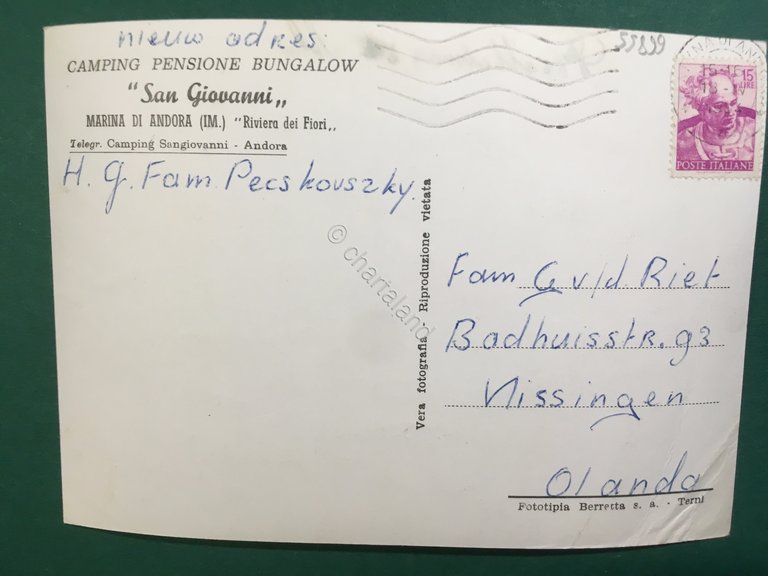 nieuw adres:
CAMPING PENSIONE BUNGALOW
"San Giovanni„
MARINA DI ANDORA (IM.) "Riviera dei Fiori„
Telegr. Camping Sangiovanni - Andora
H. G. Fam Pecskovszky.
55899
15 LIRE
POSTE ITALIANE
Vera fotografia - Riproduzione vietata
© chartaland
Fam G v/d. Riet
Badhuisstr. 93
Vlissingen
Olanda
Fototipia Berretta s. a. - Terni